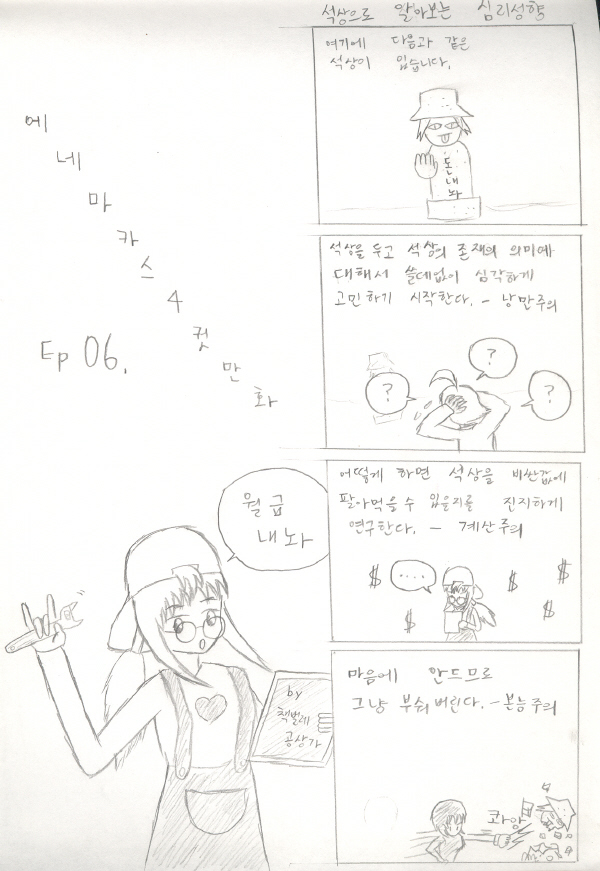 석상으로 알아보는 심리성향
에
네
마
카
스
4
컷
만
화
Ep 06.
여기에 다음과 같은
석상이 있습니다.
돈
내
놔
석상을 두고 석상의 존재의 의미에
대해서 쓸데없이 심각하게
고민하기 시작한다. - 낭만주의
?
?
?
어떻게 하면 석상을 비싼값에
팔아먹을 수 있을지를 진지하게
연구한다. - 계산주의
$
....
$
$
$
$
마음에 안드므로
그냥 부숴버린다. - 본능주의
콰앙
월급
내놔
by
책벌레
공상가